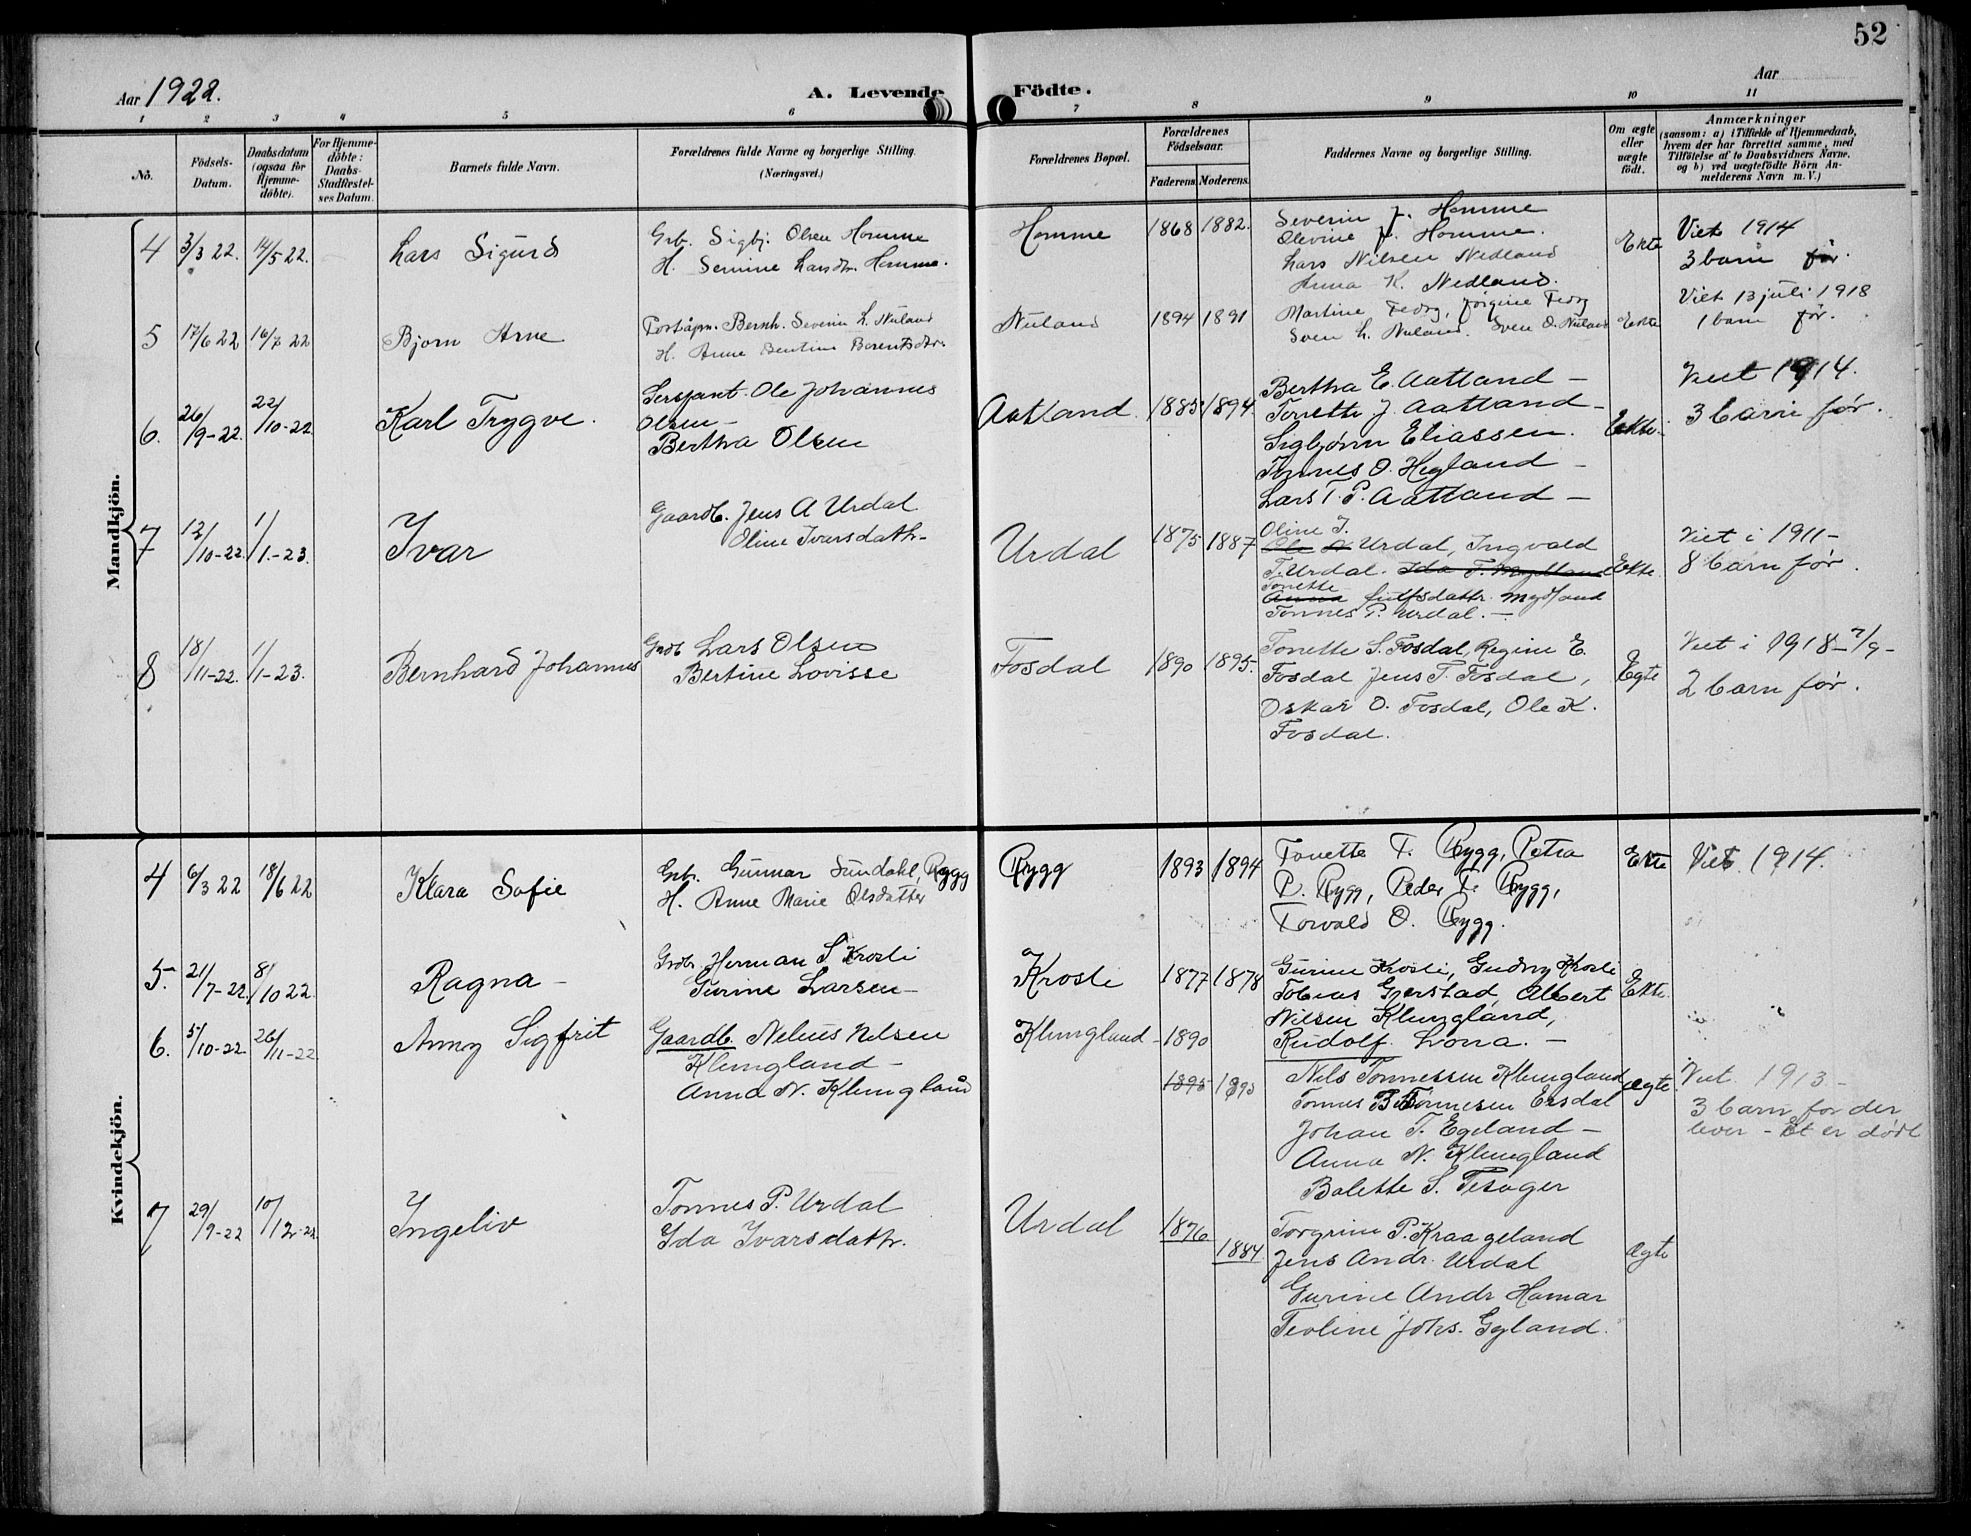 52
Aar 1922.
A. Levende Födte.
Aar
1 2 3 4 5 6 7 8 9 10 11
No.
Födsels-Datum.
Daabsdatum (ogsaa för Hjemme-döbte).
For Hjemme-döbte: Daabs-Stadfæstel-ses Datum.
Barnets fulde Navn.
Forældrenes fulde Navne og borgerlige Stilling. (Næringsvei.)
Forældrenes Bopæl.
Forældrenes Födselsaar.
Faderens. Moderens.
Faddernes Navne og borgerlige Stilling.
Om ægte eller uægte födt.
Anmærkninger
(saasom: a) i Tilfælde af Hjemmedaab, hvem der har forrettet samme, med Tilföielse af to Daabsvidners Navne, og b) ved uægtefödte Börn An-melderens Navn m. V.)
Mandkjön.
4 3/3 22. 14/5 22. Lars Sigurd
Grb. Sigbj. Olsen Homme
H. Semine Larsdtr. Homme.
Homme 1868 1882.
Severin J. Homme
Olevine J. Homme.
Lars Nilsen Nedland
Anna K. Nedland.
Ekte
Viet 1914
3 barn før.
5 17/6 22 16/7 22 Bjorn Arne
Poståpn. Bernh. Severin L. Nuland
H. Anne Bentine Berentsdtr.
Nuland 1894 1891
Martine Fedog, Jörgine Fedog
Sven L. Nuland. Sven O. Nuland
Ekte
Viet 13 juli 1918
1 barn før.
6. 26/9-22. 22/10-22 Karl Trygve.
Sersjant Ole Johannes
Olsen-
Bertha Olsen
Aatland. 1885 1894.
Bertha E. Aatland -
Tonette J. Aatland -
Sigbjörn Eliassen.
Tönnes O. Hegland -
Lars T. P. Aatland -
Ekte.
Viet 1914.
3 barn før.
7 12/10-22. 1/1-23. Ivar
Gaardb. Jens A Urdal
Oline Ivarsdatr.
Urdal 1875 1887
Oline I.
Urdal, Ingvald
T. Urdal. Ida T. Mydland
Tonette
Anna Gulfsdattr. Mydland
Tönnes P. Urdal. -
Ekte.
Viet i 1911-
8 barn før.
8 18/11-22. 1/1-23. Bernhard Johannes
Grdb Lars Olsen
Bertine Lovisse
Fosdal 1890 1895.
Tonette S. Fosdal, Regine E.
Fosdal Jens T. Fosdal,
Oskar O. Fosdal, Ole K.
Fosdal.
Egte
Viet i 1918-7/9-
2 barn før.
Kvindekjön.
4 6/3 22 18/6 22 Klara Sofie
Grb. Gunnar Sundahl, Rygg
H. Anne Marie Olsdatter
Rygg 1893 1894
Tonette T. Rygg, Petra
P. Rygg, Peder T. Rygg,
Torvald O. Rygg.
Ekte
Viet. 1914.
5. 21/7-22. 8/10 22 Ragna -
Grdb. Herman S Krosli
Gurine Larsen -
Krosli 1877 1878
Gurine Krosli, Gudny Krosli
Tobias Gjerstad, Albert
Nilsen Klungland,
Rudolf Lona. -
Ekte.
6. 5/10-22 26/11-22 Anny Sigfrit
Gaardb. Nelius Nilsen
Klungland -
Anna N. Klungland
Klungland - 1890
1895 1895
Nils Tönnessen Klungland
Tönnes B. Tönnesen Ersdal
Johan T. Egeland -
Anna N. Klungland
Balette S. Tesager
Ægte.
Viet. 1913 -
3 barn før der
lever - et er dødt
7 29/9-22 10/12-22. Ingeliv
Tonnes P. Urdal
Ida Ivarsdattr.
Urdal 1876
1884.
Torgrim P. Kraageland
Jens Andr. Urdal
Gurine Andr Hamar
Teoline Johs. Gyland.
Ægte